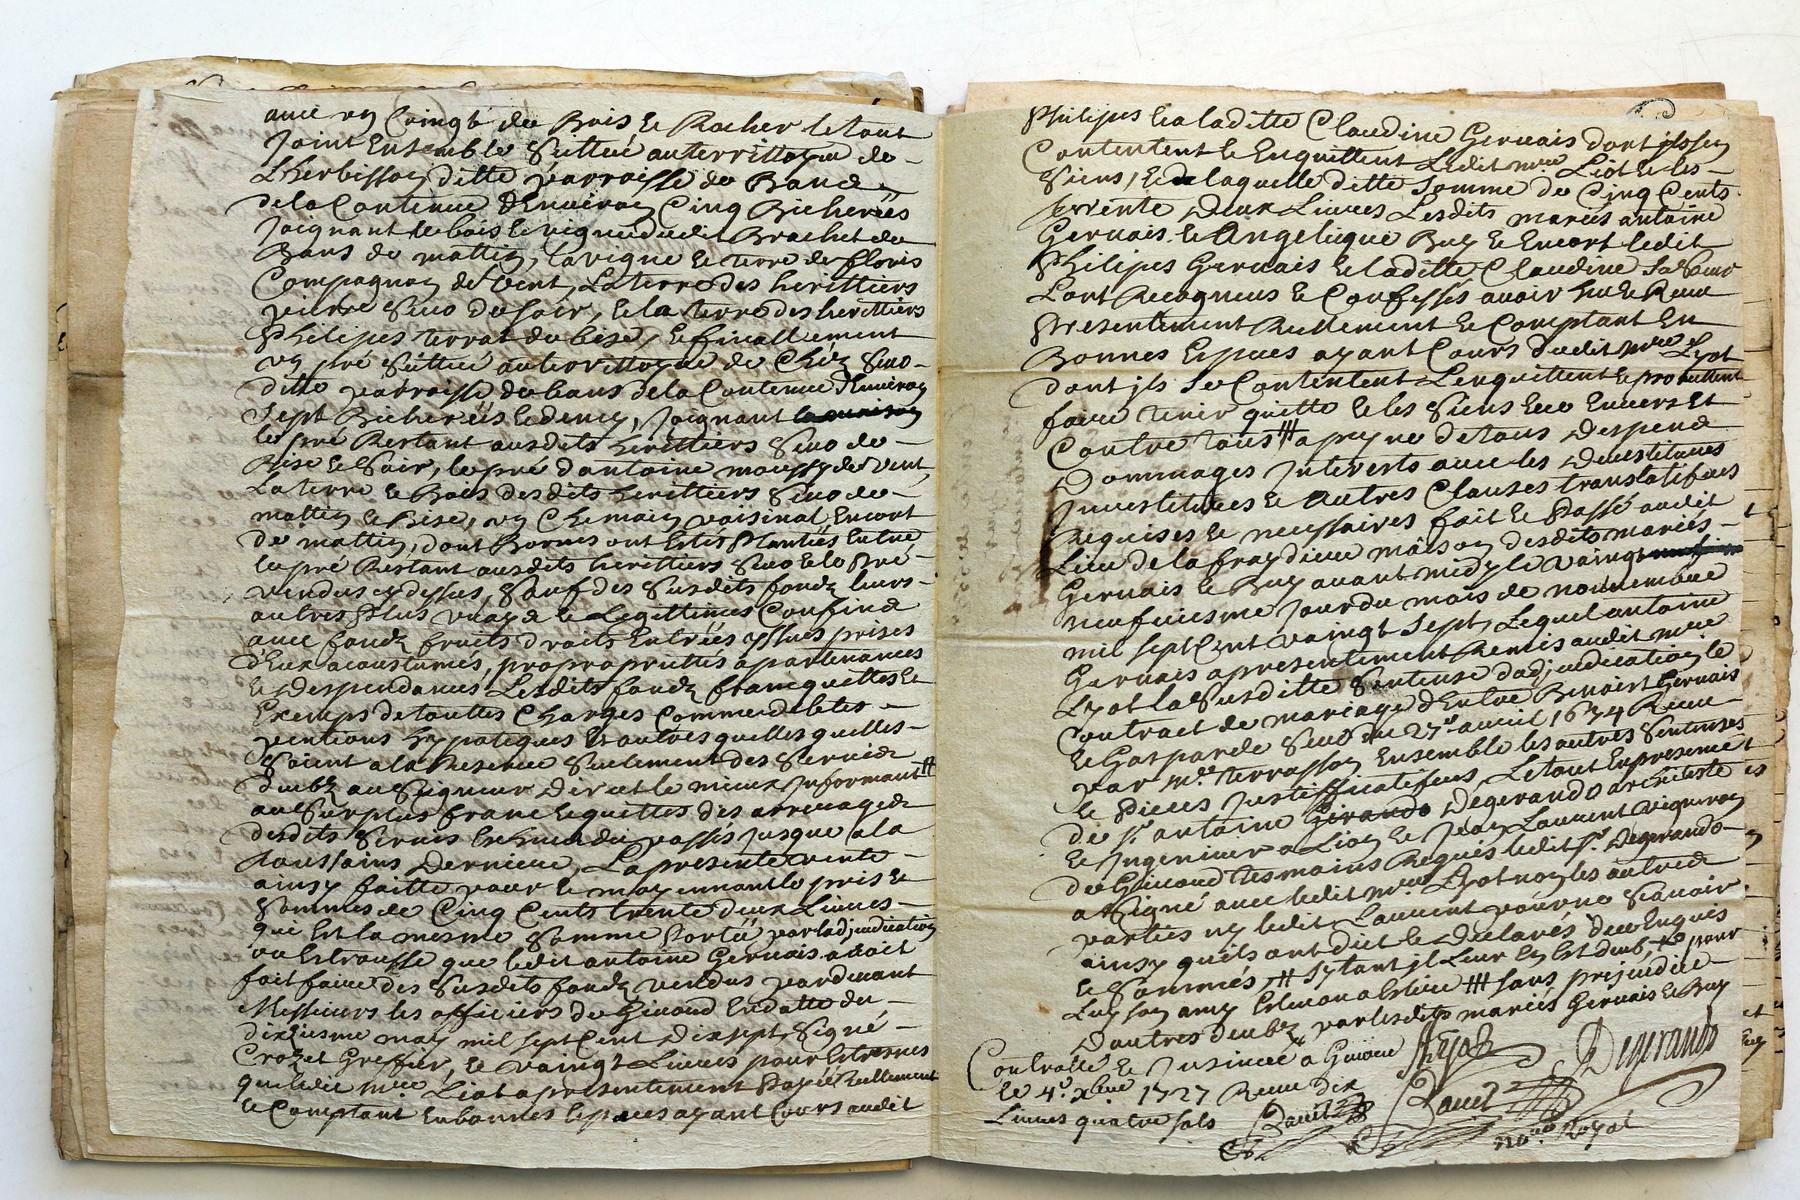 avec un coingt de Bois et Rocher le tout
Joint Ensemble Sittué au territtoyre de
L'herbisson ditte parroisse de Bans
de la Contenue d'Environ Cinq Bicherées
Joignant le bois et vigne dudit Brachet de
Bans de mattin, la vigne et terre de floris
Compagnon de Vent, La terre des herittiers
pierre Sivo de soir, et la terre des herittiers
Philipes terrat de bise, et finallement
un pré Sittué au territtoyre de Chez Sivo
ditte parroisse de bans de la Contenue d'Environ
Sept Bicherées et demy, Joignant
le pré Restant ausdits herittiers Sivo de
Bise et Soir, le pré d'antoine moussy de Vent,
La terre et Bois desdits herittiers Sivo de
mattin et Bise, un Chemain voisinal Encort
de mattin, dont Bornes ont Estés Plantées Entre
le pré Restant ausdits herittiers Sivo et le Pré
vendus cy dessus, Sauf des Susdits fondz leurs
autres Plus vrays et Legittimes Confins
avec fondz fruits droits Entrées yssues prises
d'Eux acoustumés, propropriettés apartenances
et Despendances Lesdits fondz francquittes et
Exemps de touttes Charges Commendes
ventions hypoteques et autres quelles quelles
Soient a la Reserve Seulement des Servis
deubz au Seigneur Direct le mieux Informant #
au Surplus franc et quittes des arrerages
desdits Servis Escheu du passés Jusque a la
toussains Derniere, La presente vente
ainsy faitte pour et moyennant le pris et
Sommes de Cinq Cents trente deux Livres
qui Est la mesme Somme Porté par l'adjudication
ou Estrousse que ledit antoine Gervais a voit
fait faire des Susdits fondz vendus pardevant
Messieurs les officiers de Givord En datte du
dixiesme may mil sept Cent Dix sept, Signé
Crozet Greffier, et vaingt Livres pour Estresnes
que ledit mre Liot a presentement Payé Reellement
et Comptant En bonnes Especes ayant Cours audit
Philipes et a laditte Claudine Gervais dont ils s'en
Contentent et Enquittent Ledit mre Liot et les
Siens, et de laquelle ditte Somme de Cinq Cents
trente Deux Livres Lesdits mariés antoine
Gervais et Angelique Buy et Encort ledit
Philipes Gervais et laditte Claudine Sa Soeur
L'ont Recogneus et Confessés avoir heu et Receu
Presentement Reellement et Comptant En
Bonnes Especes ayant Cours dudit mre Lyot
dont ils Se Contentent L'enquittent et promettent
faire tenir quitte et les Siens Envers Et
Contre tous # a peyne de tous Despens
Dommages Interests avec les Devestitures
Investitures et Autres Clauses translatifves
Requises et necessaires fait et Passé audit
Lieu de la fraydiere maison desdits mariés
Gervais et Buy avant midy le vaingt
neufiesme Jour du mois de novembre
mil sept Cent vaingt Sept, Lequel antoine
Gervais a presentement Remis audit mre
Lyot la Susditte Sentense d'adjudication, le
Contract de mariage d'Entre Benoist Gervais
et Gasparde Sivo du 27e avril 1674 Receu
par Me terrasson Ensemble les autres Sentenses
et Pieces Justifficatifves, Le tout En presence
de Sr antoine Girando Degerando architeste
et Ingenieur a Lion et Jean Laurent vigneron
de Givord tesmoins Requis ledit Sr Degerando
a Signé avec ledit mre Lyot non les autres
parties ny ledit Laurent pour ne Scavoir
ainsy qu'ils ont dit et Declarés de ce Enquis
et Sommés # Sy tant il Leur En Est deub, pour
Luy Son amy Esleu ou a Eslire # sans prejudice
d'autres deubz par lesdits mariés Gervais et Buy
Lyot Degerando
Controllé et Insinué a Givors
le 4e xbre 1727 Receu dix
Livres quatre sols
nore Royal